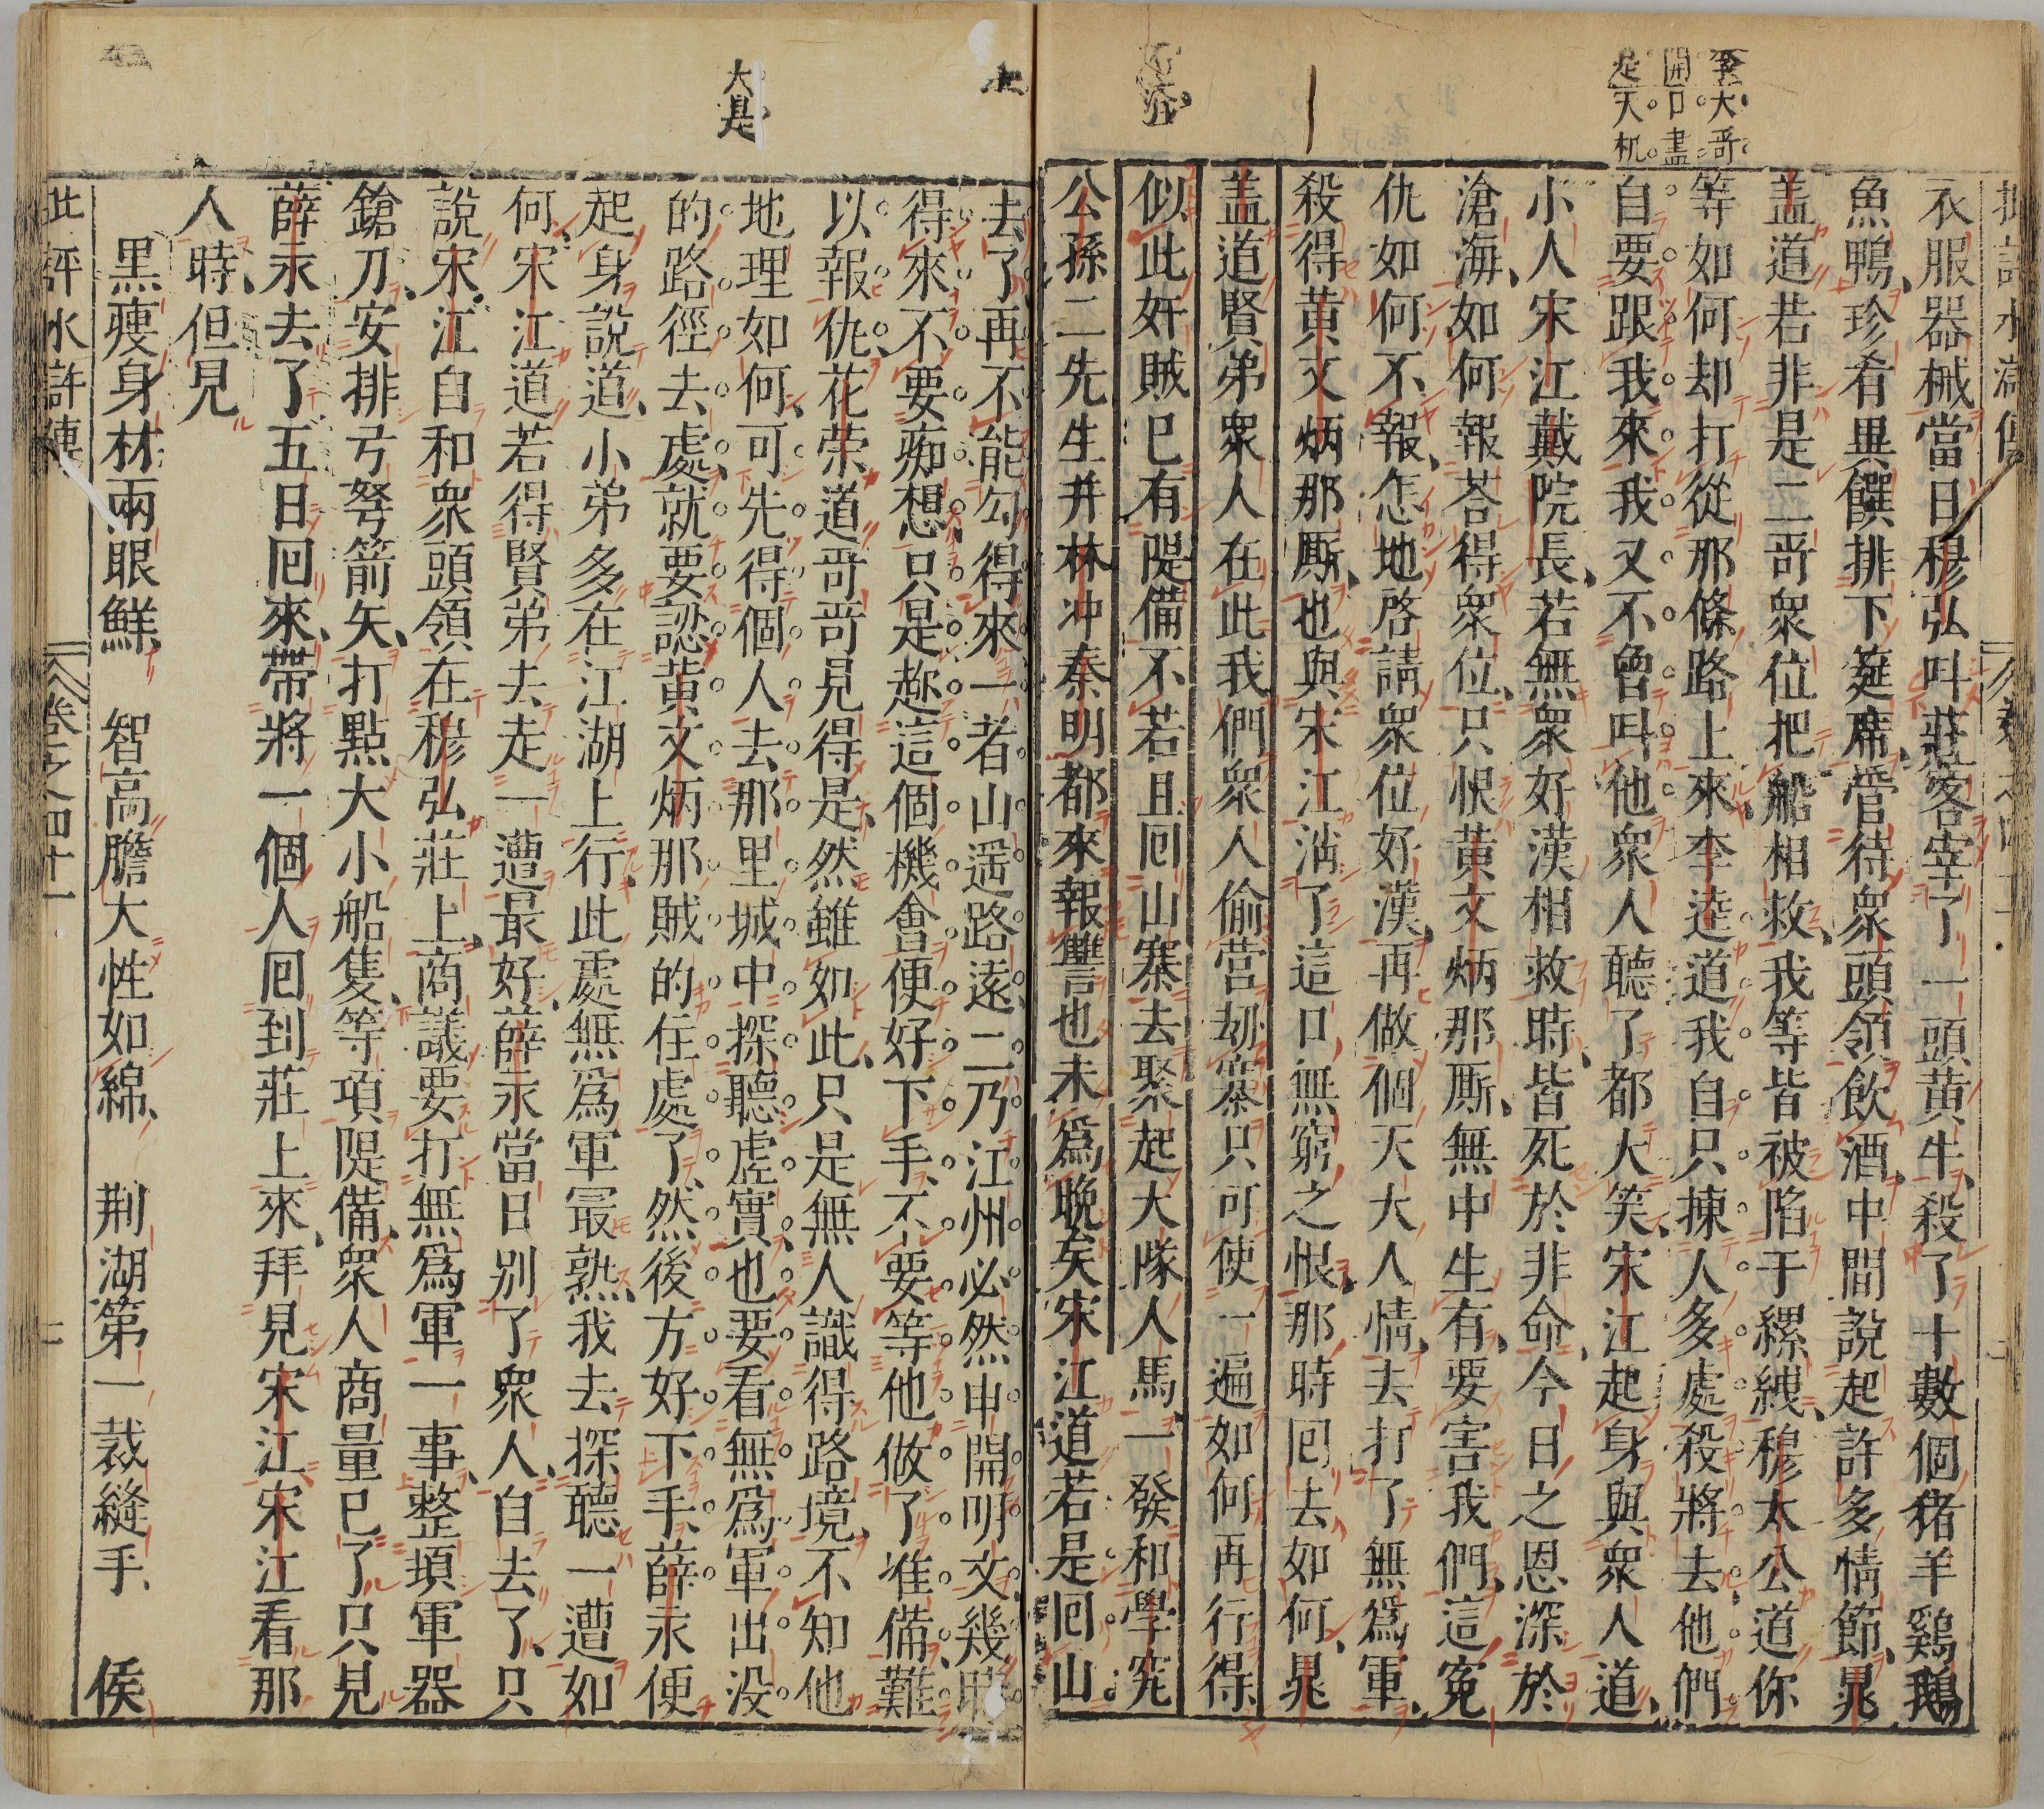 李大哥
開口盡
是天机
衣服器械當日穆弘叫莊客宰了一頭黄牛殺了十數個猪羊鷄鵝
魚鴨珍肴異饌排下筵席管待衆頭領飲酒中間說起許多情節晁
盖道若非是二哥衆位把船相救我等皆被陷于縲絏穆太公道你
等如何却打從那條路上來李逵道我自只揀人多處殺將去他們
自要跟我來我又不曾叫他衆人聽了都大笑宋江起身與衆人道
小人宋江戴院長若無衆好漢相救時皆死於非命今日之恩深於
滄海如何報荅得衆位只恨黄文炳那厮無中生有要害我們這寃
仇如何不報怎地啓請衆位好漢再做個天大人情去打了無爲軍
殺得黄文炳那厮也與宋江消了這口無窮之恨那時囘去如何晁
盖道賢弟衆人在此我們衆人偷營刼寨只可使一遍如何再行得
似此奸賊已有隄備不若且囘山寨去聚起大隊人馬一發和學究
公孫二先生并林冲秦明都來報讐也未爲晚矣宋江道若是囘山
去了再不能勾得來一者山遥路遠二乃江州必然申開明文幾時
得來不要痴想只是趂這個機會便好下手不要等他做了准備難
以報仇花荣道哥哥見得是然雖如此只是無人識得路境不知他
地理如何可先得個人去那里城中探聽虚實也要看無爲軍出没
的路徑去處就要認黄文炳那賊的住處了然後方好下手薛永便
起身說道小弟多在江湖上行此處無爲軍最熟我去探聽一遭如
何宋江道若得賢弟去走一遭最好薛永當日别了衆人自去了只
說宋江自和衆頭領在穆弘莊上商議要打無爲軍一事整頓軍器
鎗刀安排弓弩箭矢打點大小船隻等項隄備衆人商量已了只見
薛永去了五日囘來帶將一個人囘到莊上來拜見宋江宋江看那
人時但見
黒瘦身材兩眼鮮 智高膽大性如綿 荆湖第一裁縫手 侯
大是
批評水滸傳 卷之四十一